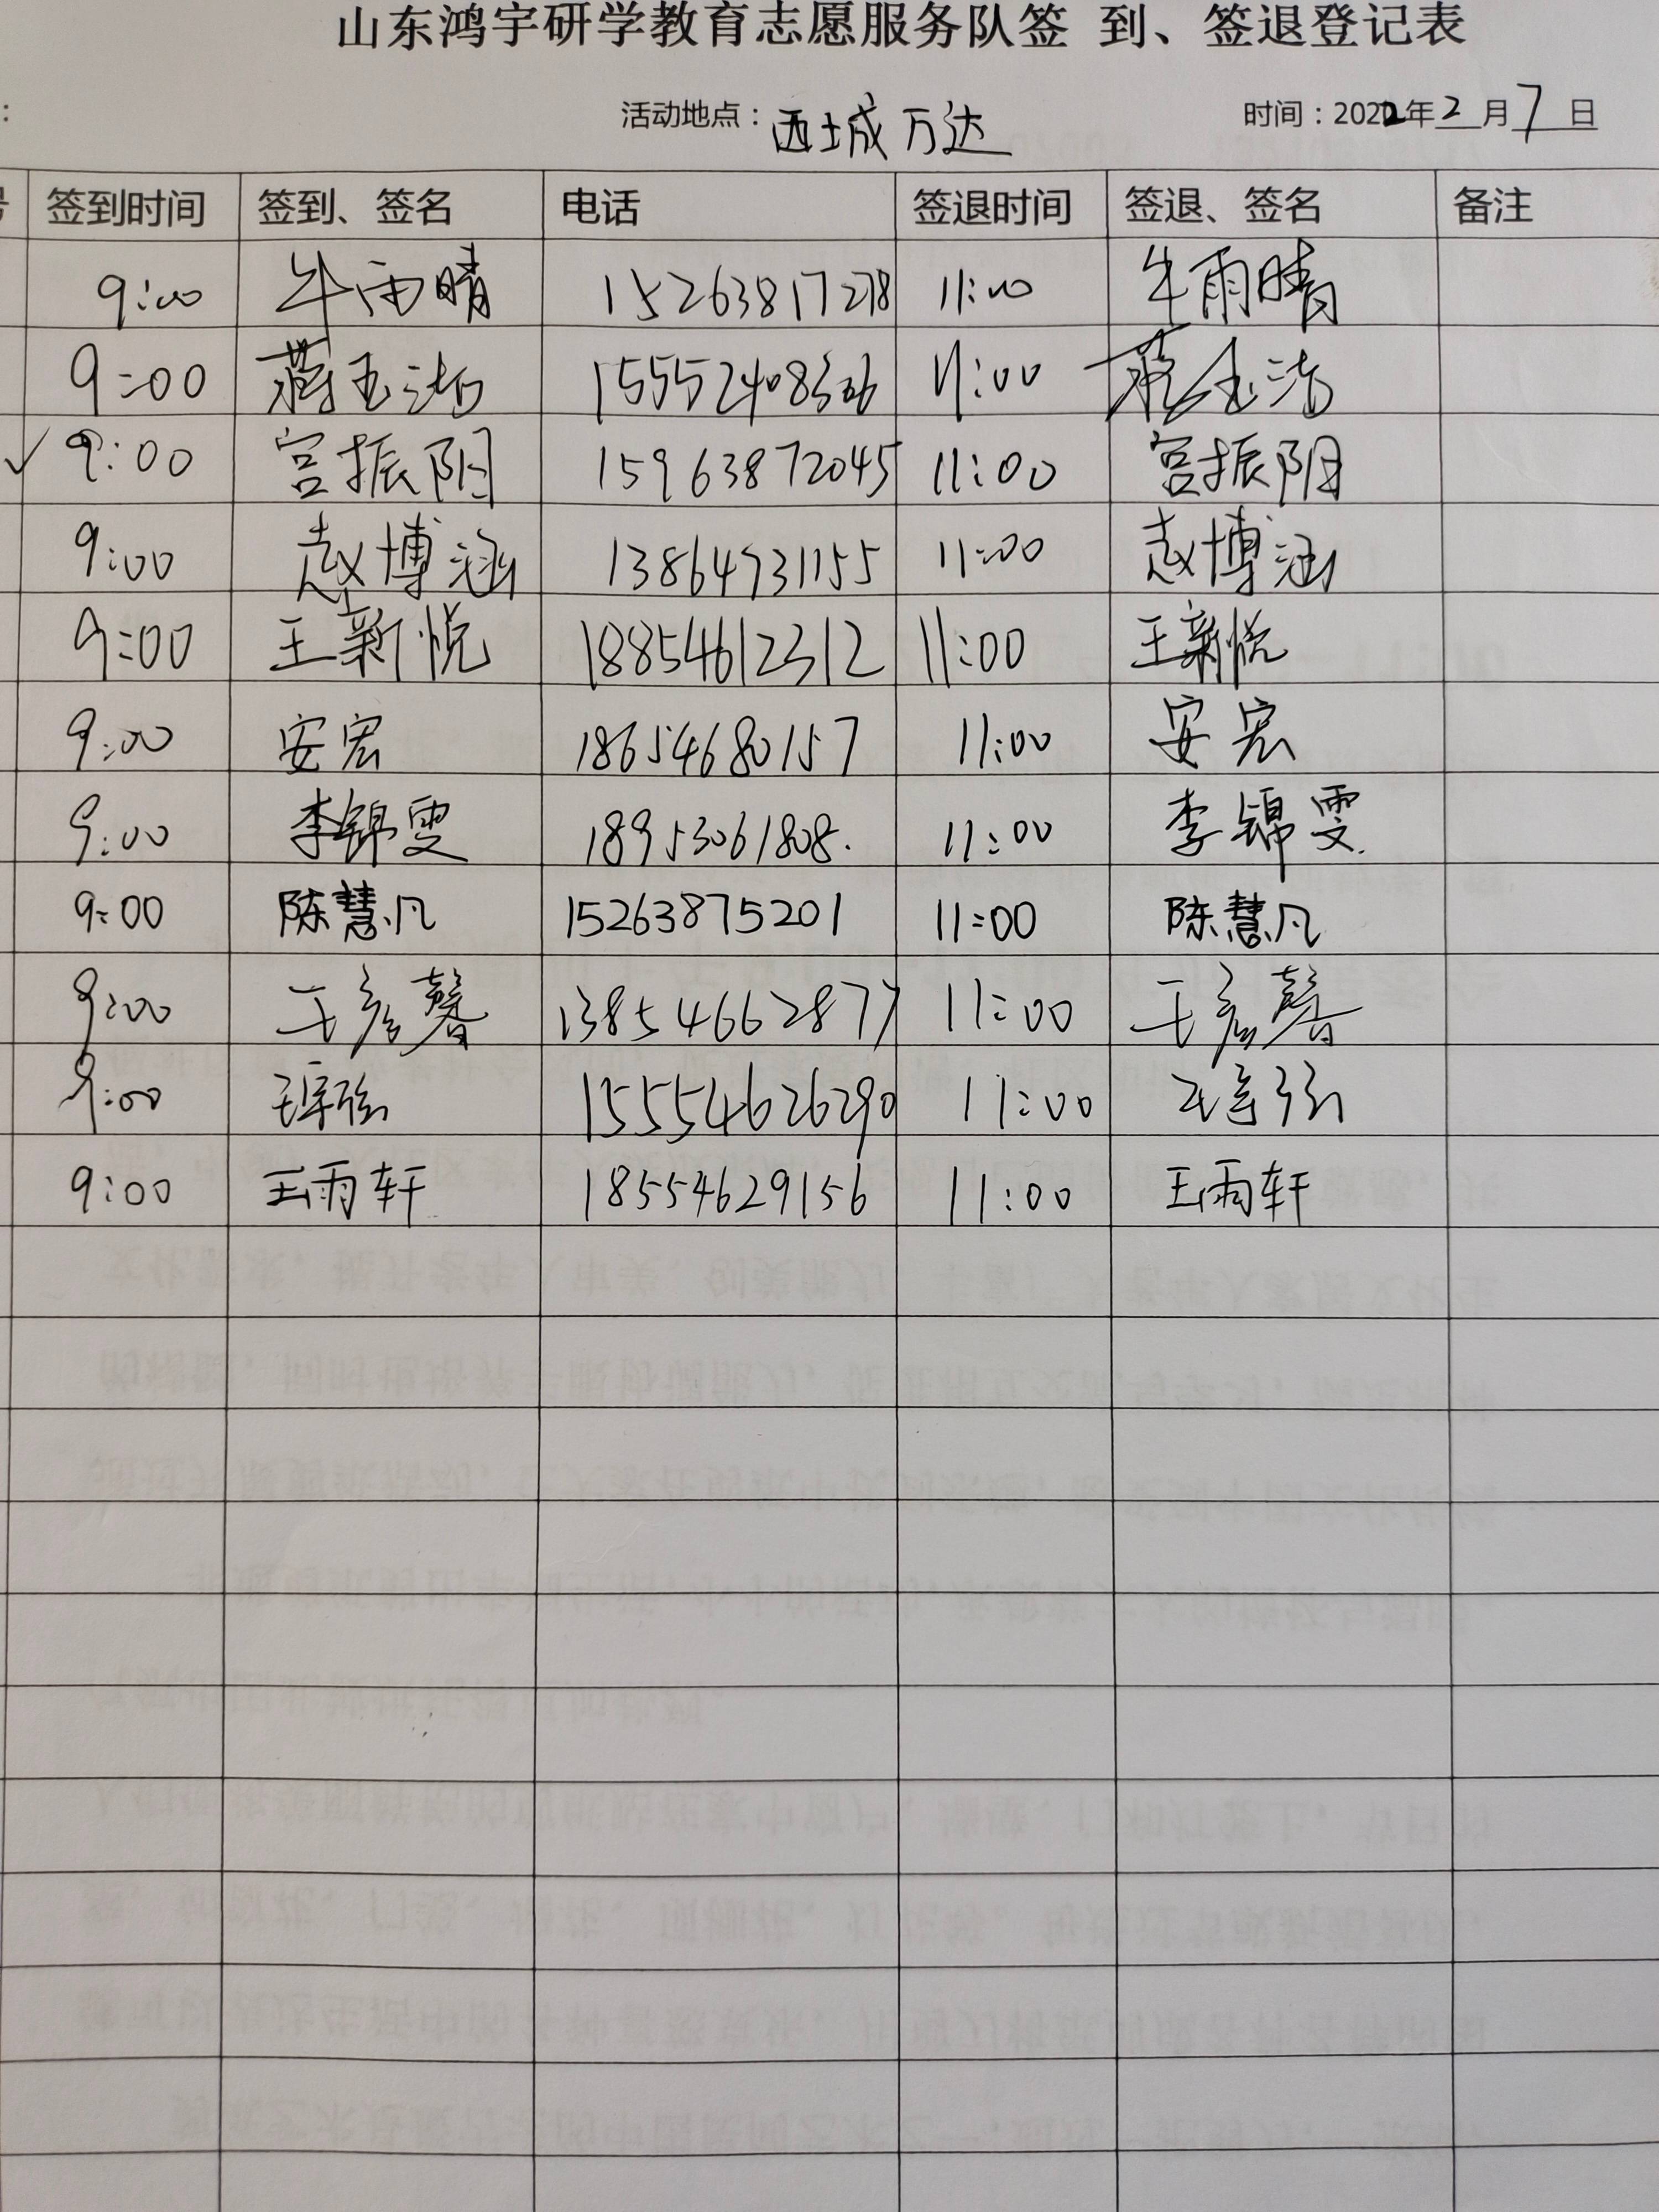 山东鸿宇研学教育志愿服务队签 到、签退登记表
: 活动地点: 西城万达 时间:2022年2月7日
签到时间 签到、签名 电话 签退时间 签退、签名 备注
9:00 牛雨晴 15263817278 11:00 牛雨晴
9:00 蒋玉洁 15552408306 11:00 蒋玉洁
√ 9:00 宫振阳 15963872045 11:00 宫振阳
9:00 赵博涵 13864731155 11:00 赵博涵
9:00 王新悦 18854612312 11:00 王新悦
9:00 安宏 18654680157 11:00 安宏
9:00 李锦雯 18953061808. 11:00 李锦雯
9:00 陈慧凡 15263875201 11:00 陈慧凡
9:00 王彦馨 13854662877 11:00 王彦馨
9:00 15554626290 11:00
9:00 王雨轩 18554629156 11:00 王雨轩